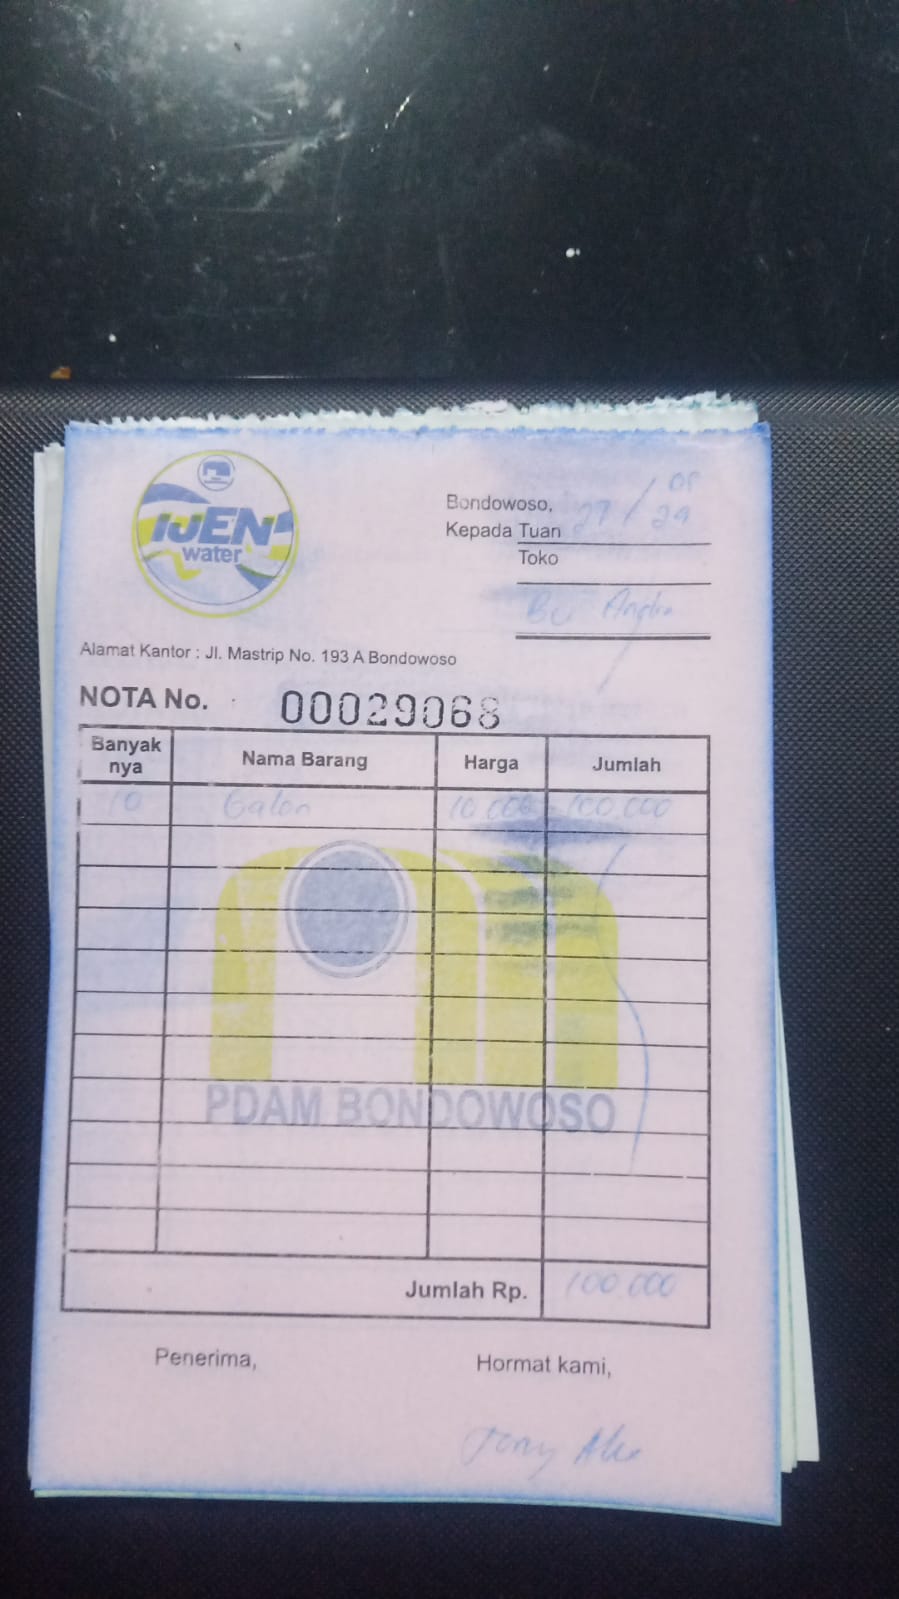 IJEN
water
Bondowoso, 27 / 24
Kepada Tuan
Toko
Bu
Alamat Kantor : Jl. Mastrip No. 193 A Bondowoso
NOTA No. 00029068
Banyak nya Nama Barang Harga Jumlah
10 Galon 10.000 100.000
PDAM BONDOWOSO
Jumlah Rp. 100.000
Penerima, Hormat kami,